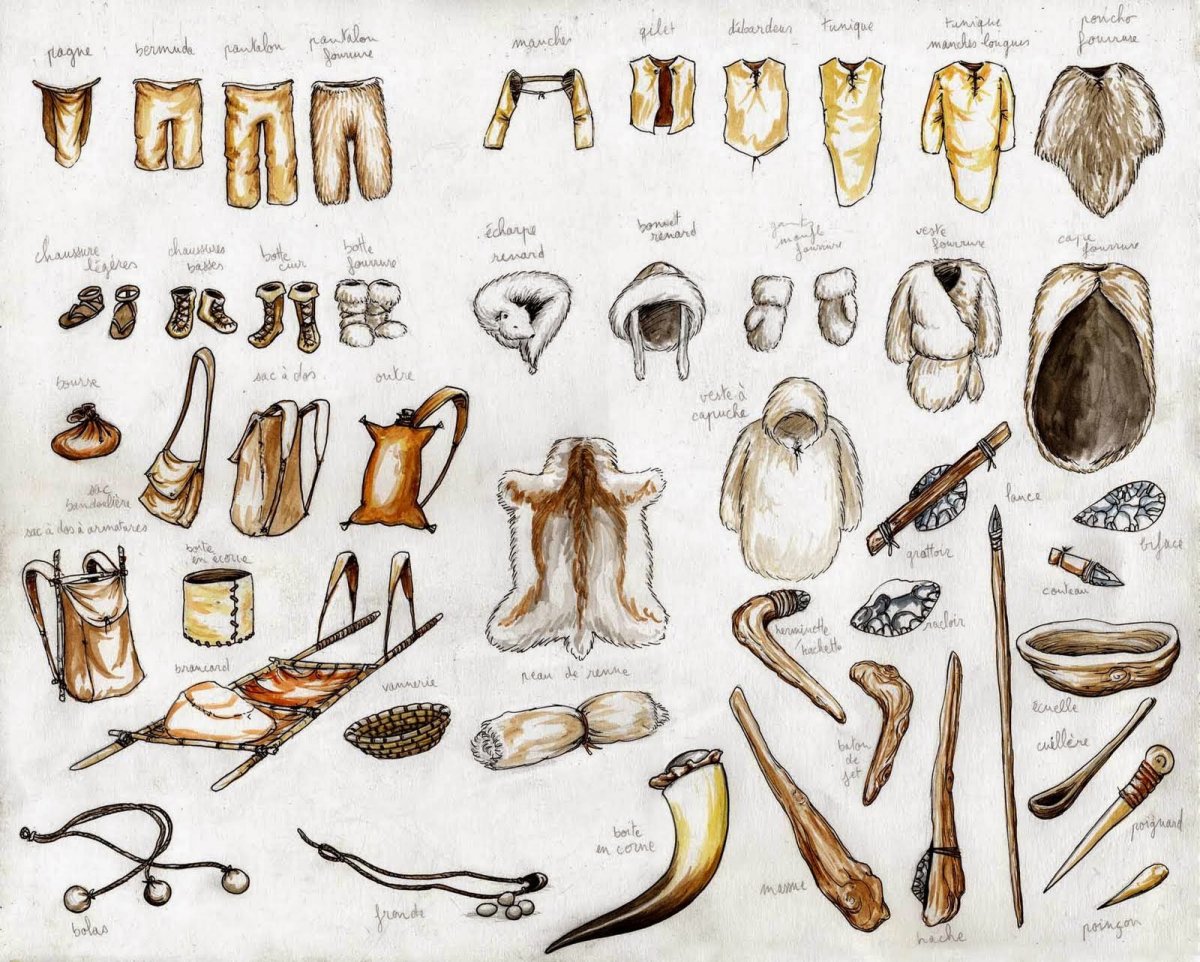 pagne
bermuda
pantalon
pantalon
fourrure
manches
gilet
débardeur
tunique
tunique
manches longues
poncho
fourrure
chaussure
légères
chaussures
basses
botte
cuir
botte
fourrure
écharpe
renard
bonnet
renard
moufle
fourrure
veste
fourrure
cape
fourrure
bourse
sac
bandoulière
sac à dos
outre
veste à
capuche
sac à dos à armatures
boite
en écorce
brancard
vannerie
peau de renne
grattoir
lance
biface
couteau
herminette
hachette
racloir
écuelle
baton
de
jet
cuillère
poignard
bolas
fronde
boite
en corne
massue
hache
poinçon